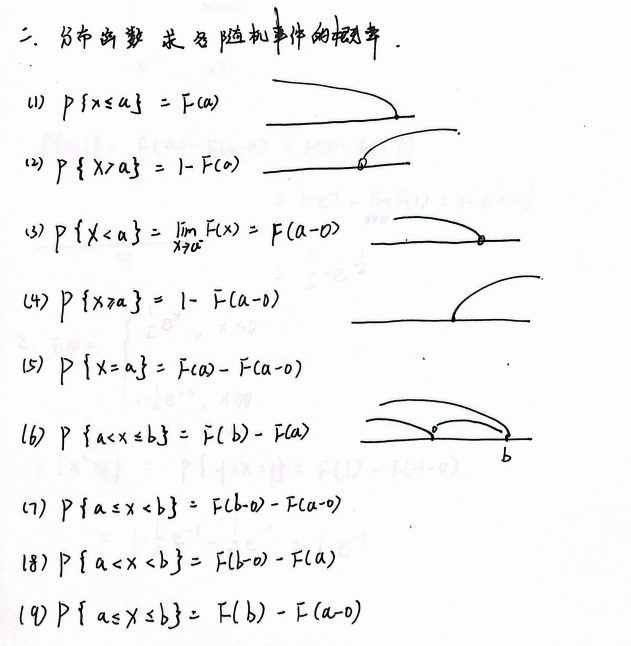 二. 分布函数求各随机事件的概率.
(1) P{x≤a} = F(a)
(2) P{X>a} = 1-F(a)
(3) P{X<a} = lim F(x) = F(a-0)
x→a⁻
(4) P{x≥a} = 1- F(a-0)
(5) P{x=a} = F(a) - F(a-0)
(6) P{a<x≤b} = F(b) - F(a)
b
(7) P{a≤x<b} = F(b-0) - F(a-0)
(8) P{a<x<b} = F(b-0) - F(a)
(9) P{a≤x≤b} = F(b) - F(a-0)